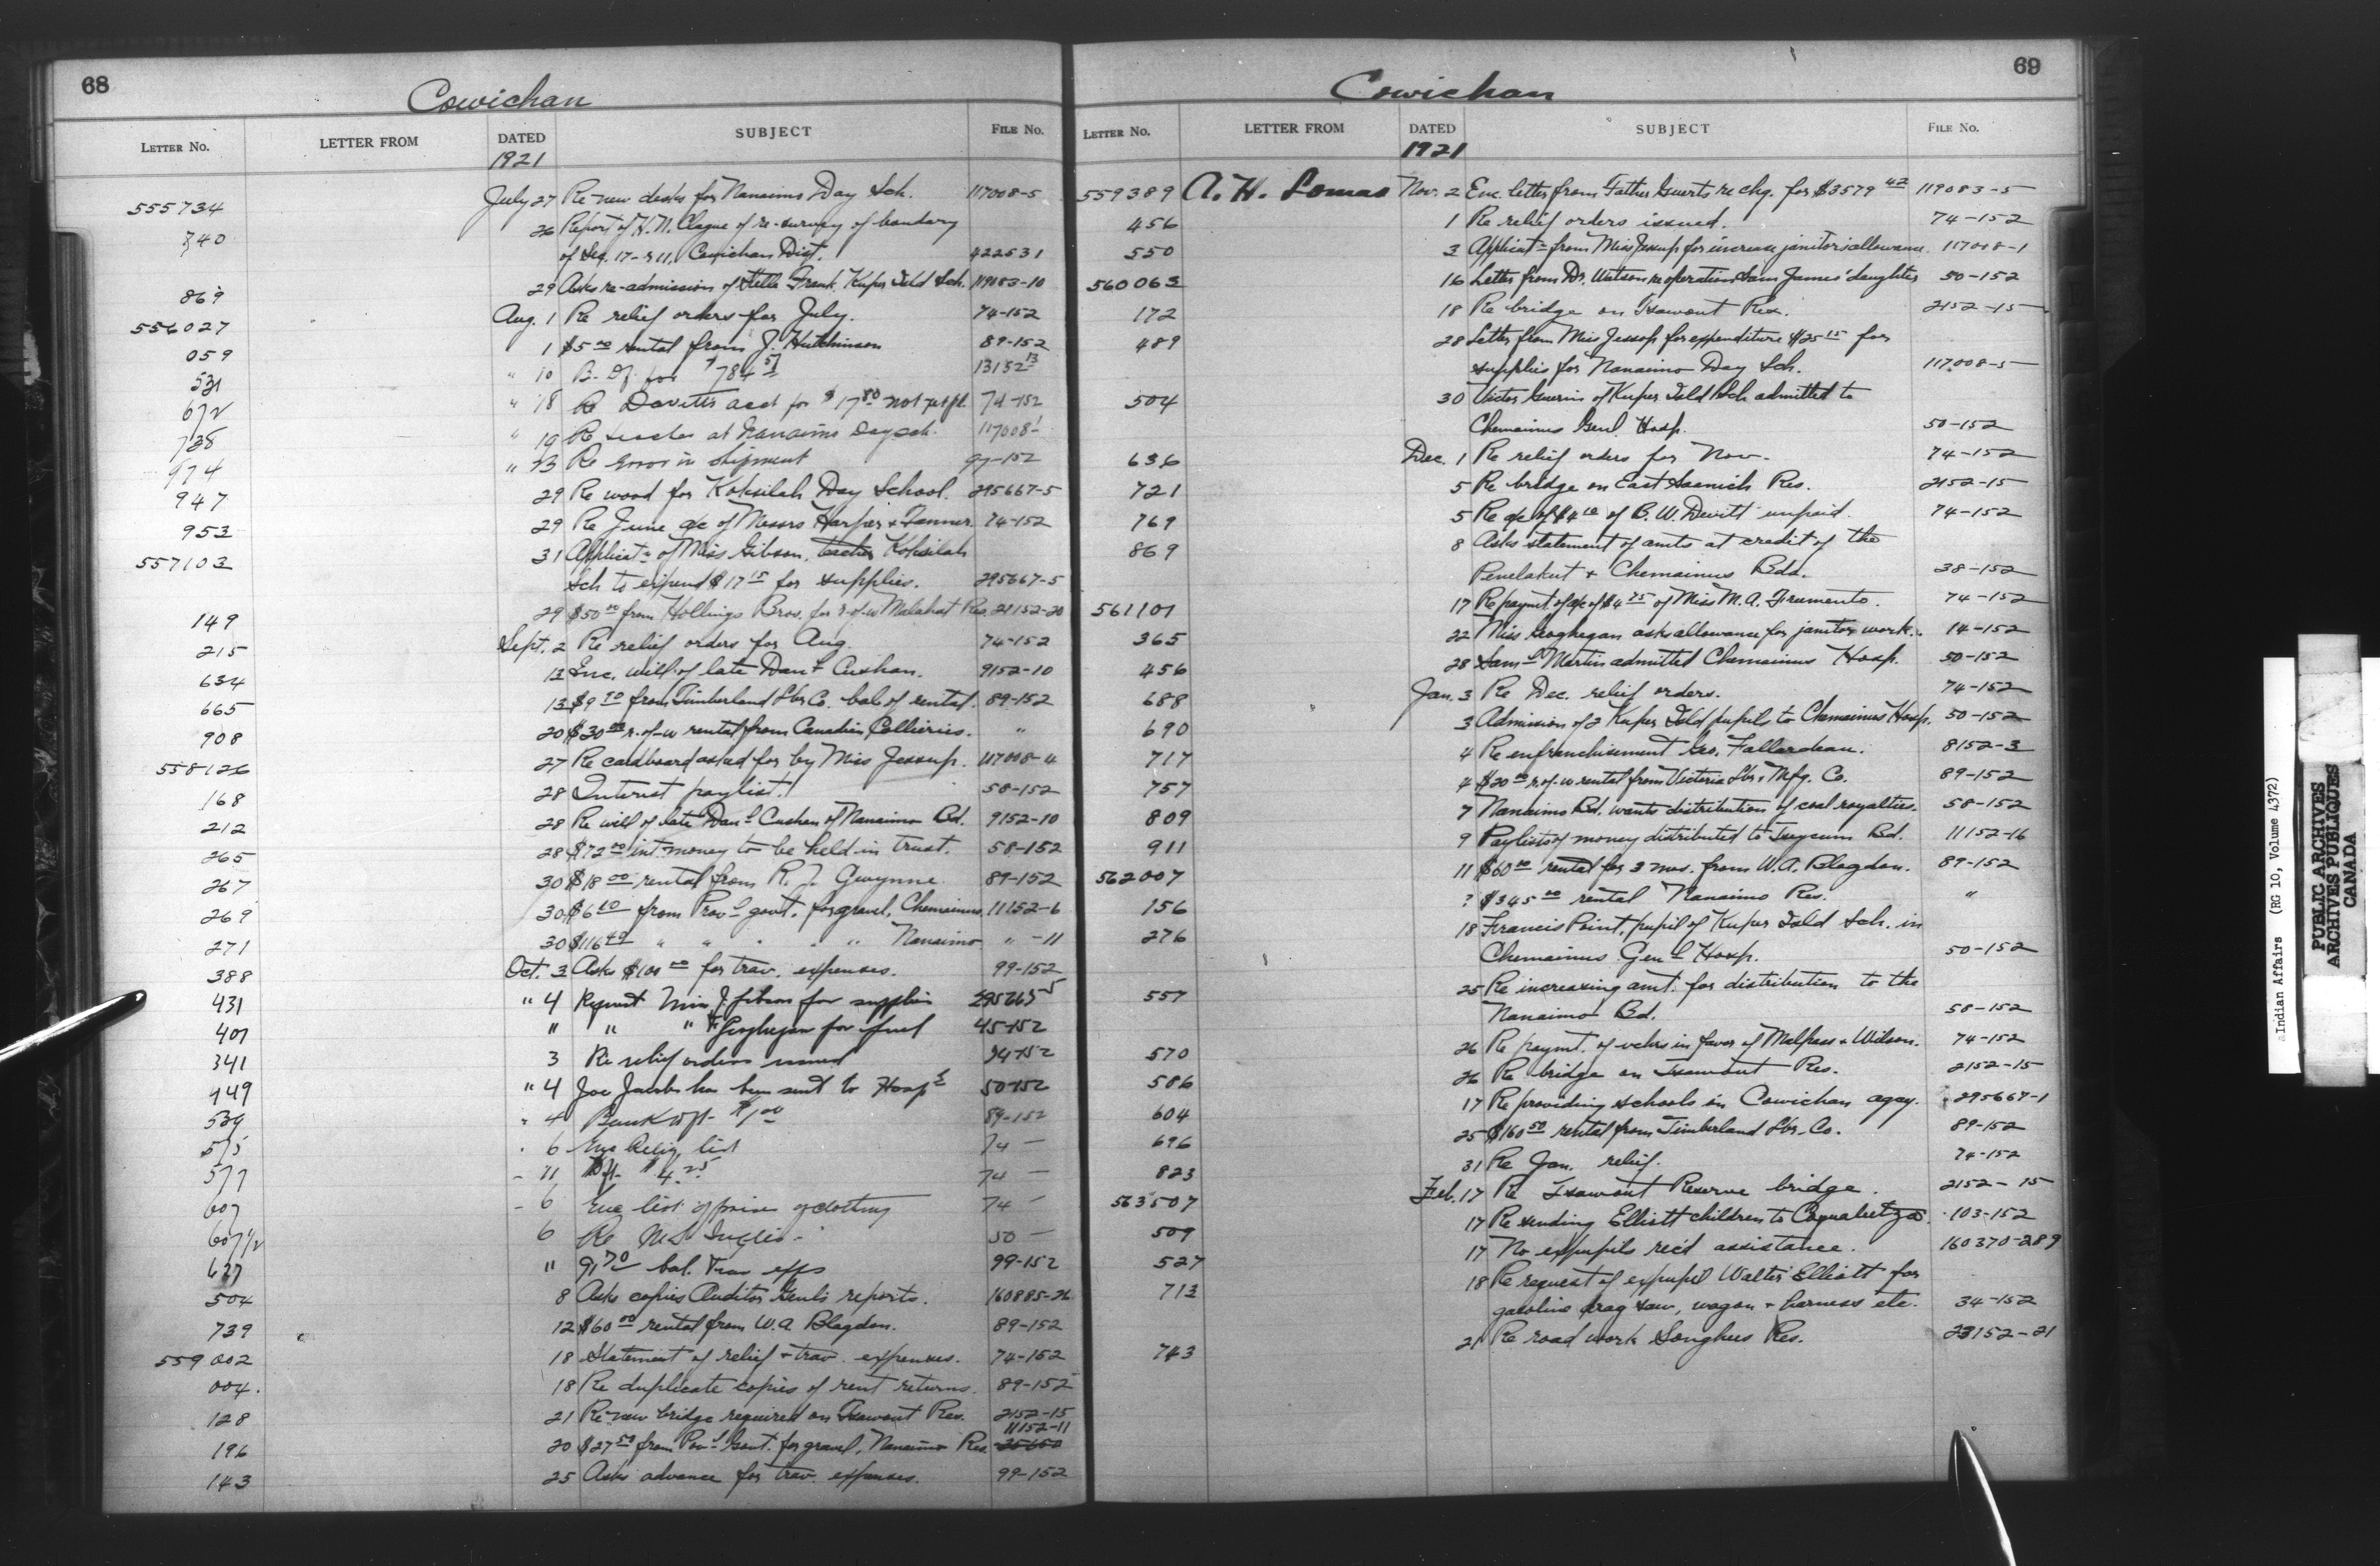 68
Cowichan
LETTER NO. LETTER FROM DATED SUBJECT FILE No.
1921
555734 July 27 Re new desks for Nanaimo Day Sch. 117008-5
740 26 Report of H.N. Clague of re-survey of boundary
of Sec. 17- r 11, Cowichan Dist. 422531
869 29 Asks re-admission of Stella Frank, Kuper Isld Sch. 119083-10
556027 Aug. 1 Re relief orders for July. 74-152
059 1 $5 00 rental from J. Hutchinson 89-152
531 " 10 B. Df. for $784 57 13152 13
672 " 18 Re Dovitts acct for $17 80 not 74-152
738 " 19 Re teacher at Nanaimo Day sch. 117008-1
974 " 23 Re error in shipment 97-152
947 29 Re wood for Koksilah Day School. 295667-5
953 29 Re June a/c of Messrs Harper & Tanner. 74-152
557103 31 Applicatn of Miss Gibson, teacher Koksilah
Sch to expend $17 15 for supplies. 295667-5
149 29 $50 00 from Hollings Bros. for r-of-w Malahat Res. 21152-20
215 Sept. 2 Re relief orders for Aug. 74-152
634 13 Enc. will of late Danl Cushan. 9152-10
665 13 $9 70 from Timberland Lbr Co. bal. of rental. 89-152
908 20 $30 00 r.-of-w rental from Canadian Collieries. "
558126 27 Re cardboard asked for by Miss Jessup. 117008-4
168 28 Interest paylist. 58-152
212 28 Re will of late Danl Cushan of Nanaimo Bd. 9152-10
265 28 $72 00 int. money to be held in trust. 58-152
267 30 $18 00 rental from R. J. Gwynne 89-152
269 30 $6 60 from Provl govt. for gravel, Chemainus. 11152-6
271 30 $116 40 " " " " " Nanaimo " -11
388 Oct. 3 Asks $100 00 for trav. expenses. 99-152
431 " 4 Request Miss J. Gibson for supplies 295667-5
401 " " " F Geoghegan for fuel 45-152
341 3 Re relief orders issued 74-152
449 " 4 Joe Jacobs has been sent to Hospl 50-152
539 " 4 Bank Dft- $1 00 89-152
575 " 6 Enc Relig list 74 -
577 - 11 Dft- $4 25 74 -
607 - 6 Enc list of prices of clothing 74 -
607 1/2 6 Re Inglis - 50 -
627 " 91 70 bal. Trav exps 99-152
504 8 Asks copies Auditor Genl's reports. 160885-26
739 12 $60 00 rental from W.A. Blagdon. 89-152
559002 18 Statement of relief & trav. expenses. 74-152
004. 18 Re duplicate copies of rent returns. 89-152
128 21 Re new bridge required on Tsawout Res. 2152-15
196 20 $27 50 from Provl Govt. for gravel, Nanaimo Res. 11152-11
143 25 Asks advance for trav. expenses. 99-152
69
Cowichan
LETTER No. LETTER FROM DATED SUBJECT FILE No.
1921
559389 A. H. Lomas Nov. 2 Enc. letter from Father Geurts re chq. for $3579 42 119083-5
456 1 Re relief orders issued. 74-152
550 3 Applicatn from Miss Jessup for increase janitor's allowance. 117008-1
560063 16 Letter from Dr. Watson re operation Sam James' daughter 50-152
172 18 Re bridge on Tsawout Res. 2152-15
489 28 Letter from Miss Jessop for expenditure $25 15 for
supplies for Nanaimo Day Sch. 117008-5
504 30 Victor Guerin of Kuper Isld Sch admitted to
Chemainus Genl. Hosp. 50-152
636 Dec. 1 Re relief orders for Nov. 74-152
721 5 Re bridge on East Saanich Res. 2152-15
769 5 Re a/c of $4 10 of B.W. Devitt unpaid. 74-152
869 8 Asks statement of amts at credit of the
Penelakut & Chemainus Bds. 38-152
561101 17 Re paymt of a/c of $4 75 of Miss M.A. Frumento. 74-152
365 22 Miss Geoghegan asks allowance for janitor work. 14-152
456 28 Saml Martin admitted Chemainus Hosp. 50-152
688 Jan. 3 Re Dec. relief orders. 74-152
690 3 Admission of 2 Kuper Isld pupils to Chemainus Hosp. 50-152
717 4 Re enfranchisement Geo. Fallardeau. 8152-3
757 4 $20 00 r.of-w rental from Victoria Lbr & Mfg. Co. 89-152
809 7 Nanaimo Bd. wants distribution of coal royalties. 58-152
911 9 Paylists of money distributed to Tseycum Bd. 11152-16
562007 11 $60 00 rental for 3 mos. from W.A. Blagdon. 89-152
156 ? $345 00 rental Nanaimo Res. "
276 18 Francis Point, pupil of Kuper Isld Sch. in
Chemainus Genl Hosp. 50-152
557 25 Re increasing amt. for distribution to the
Nanaimo Bd. 58-152
570 26 Re paymt. of vchrs in favor of Malpass & Wilson. 74-152
586 26 Re bridge on Tsawout Res. 2152-15
604 17 Re providing schools in Cowichan agcy. 295667-1
696 25 $160 50 rental from Timberland Lbr. Co. 89-152
823 31 Re Jan. relief. 74-152
563507 Feb. 17 Re Tsawout Reserve bridge. 2152-15
509 17 Re sending Elliott children to Coqualeetza. 103-152
527 17 No expupils rec'd assistance. 160370-289
713 18 Re request of expupil Walter Elliott for
gasoline drag saw, wagon & harness etc. 34-152
743 21 Re road work Songhees Res. 23152-21
Indian Affairs (RG 10, Volume 4372)
PUBLIC ARCHIVES
ARCHIVES PUBLIQUES
CANADA